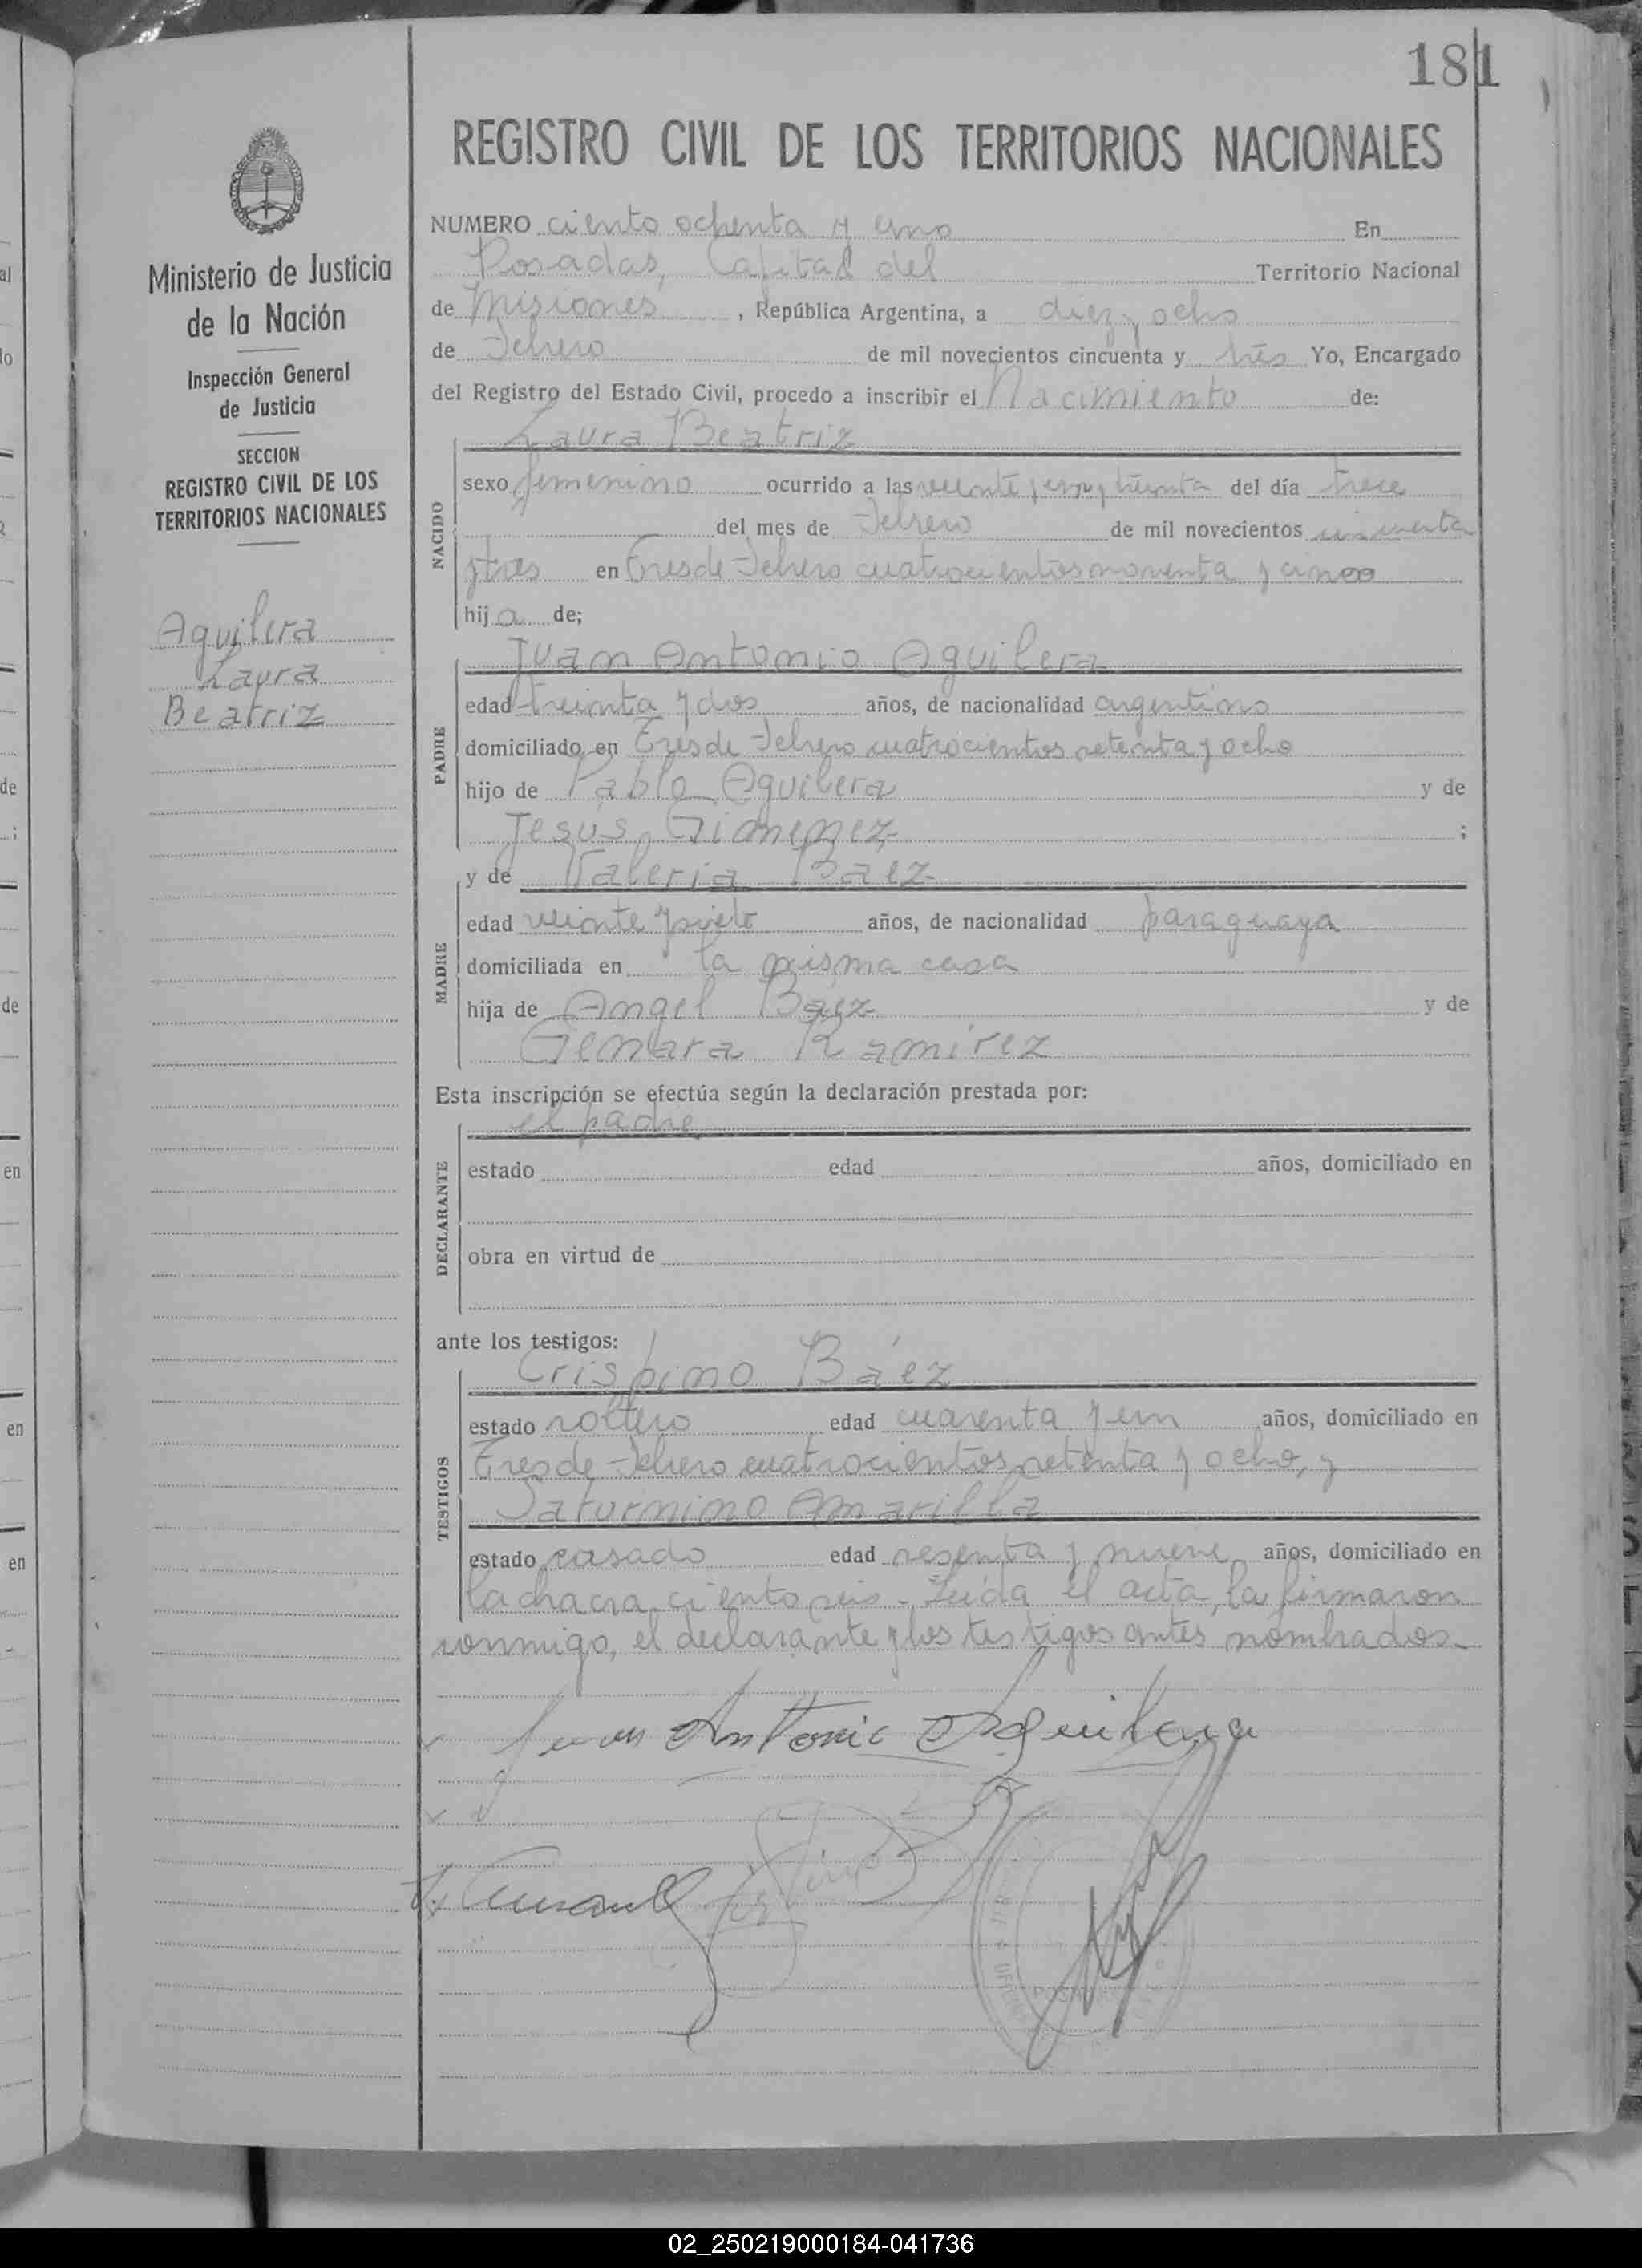 181
REGISTRO CIVIL DE LOS TERRITORIOS NACIONALES
Ministerio de Justicia
de la Nación
Inspección General
de Justicia
SECCION
REGISTRO CIVIL DE LOS
TERRITORIOS NACIONALES
Aguilera
Laura
Beatriz
NUMERO ciento ochenta y uno En
Posadas, Capital del Territorio Nacional
de Misiones, República Argentina, a diez y ocho
de Febrero de mil novecientos cincuenta y tres Yo, Encargado
del Registro del Estado Civil, procedo a inscribir el Nacimiento de:
NACIDO
Laura Beatriz
sexo femenino ocurrido a las veinte y treinta del día trece
del mes de Febrero de mil novecientos cincuenta
y tres en Tres de Febrero cuatrocientos noventa y cinco
hija de;
PADRE
Juan Antonio Aguilera
edad treinta y dos años, de nacionalidad argentino
domiciliado en Tres de Febrero cuatrocientos setenta y ocho
hijo de Pablo Aguilera y de
Jesus Gimenez ;
MADRE
y de Valeria Baez
edad veinte y siete años, de nacionalidad paraguaya
domiciliada en la misma casa
hija de Angel Baez y de
Genara Ramirez
Esta inscripción se efectúa según la declaración prestada por:
el padre
DECLARANTE
estado edad años, domiciliado en
obra en virtud de
ante los testigos:
TESTIGOS
Crispino Báez
estado soltero edad cuarenta y un años, domiciliado en
Tres de Febrero cuatrocientos setenta y ocho, y
Saturnino Amarilla
estado casado edad sesenta y nueve años, domiciliado en
la chacra ciento seis - Leída el acta, la firmaron
conmigo, el declarante y los testigos antes nombrados.-
Juan Antonio Aguilera
02_250219000184-041736